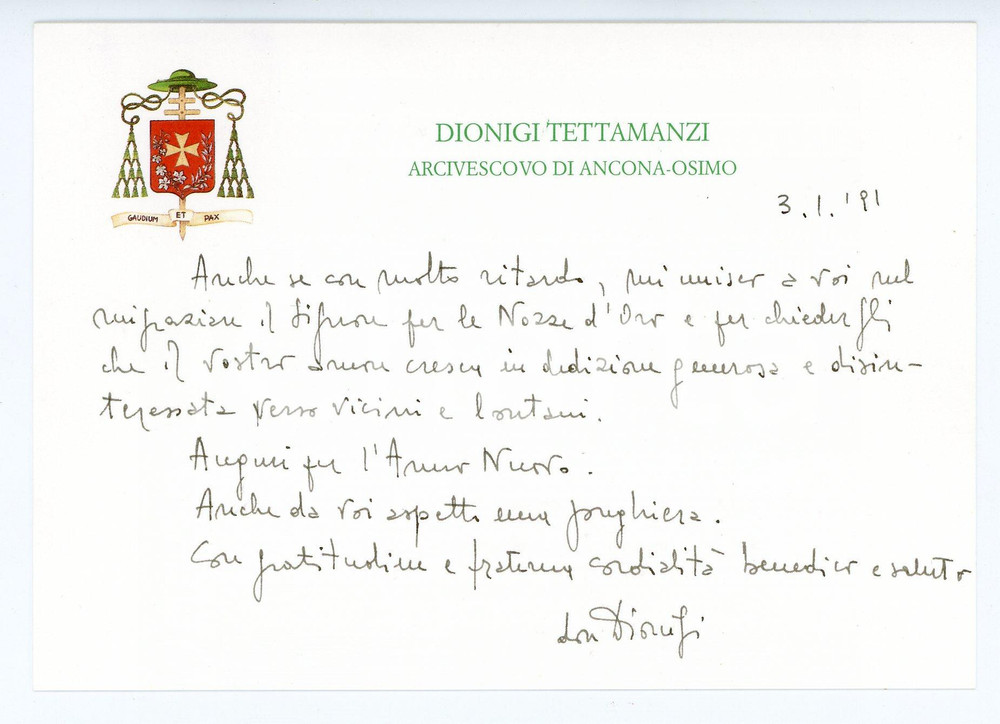 GAUDIUM ET PAX
DIONIGI TETTAMANZI
ARCIVESCOVO DI ANCONA-OSIMO
3.1.'91
Anche se con molto ritardo, mi unisco a voi nel
ringraziare il Signore per le Nozze d'Oro e per chiedergli
che il vostro amore cresca in dedizione generosa e disin-
teressata verso vicini e lontani.
Auguri per l'Anno Nuovo.
Anche da voi aspetto una preghiera.
Con gratitudine e fraterna cordialità benedico e saluto
don Dionigi